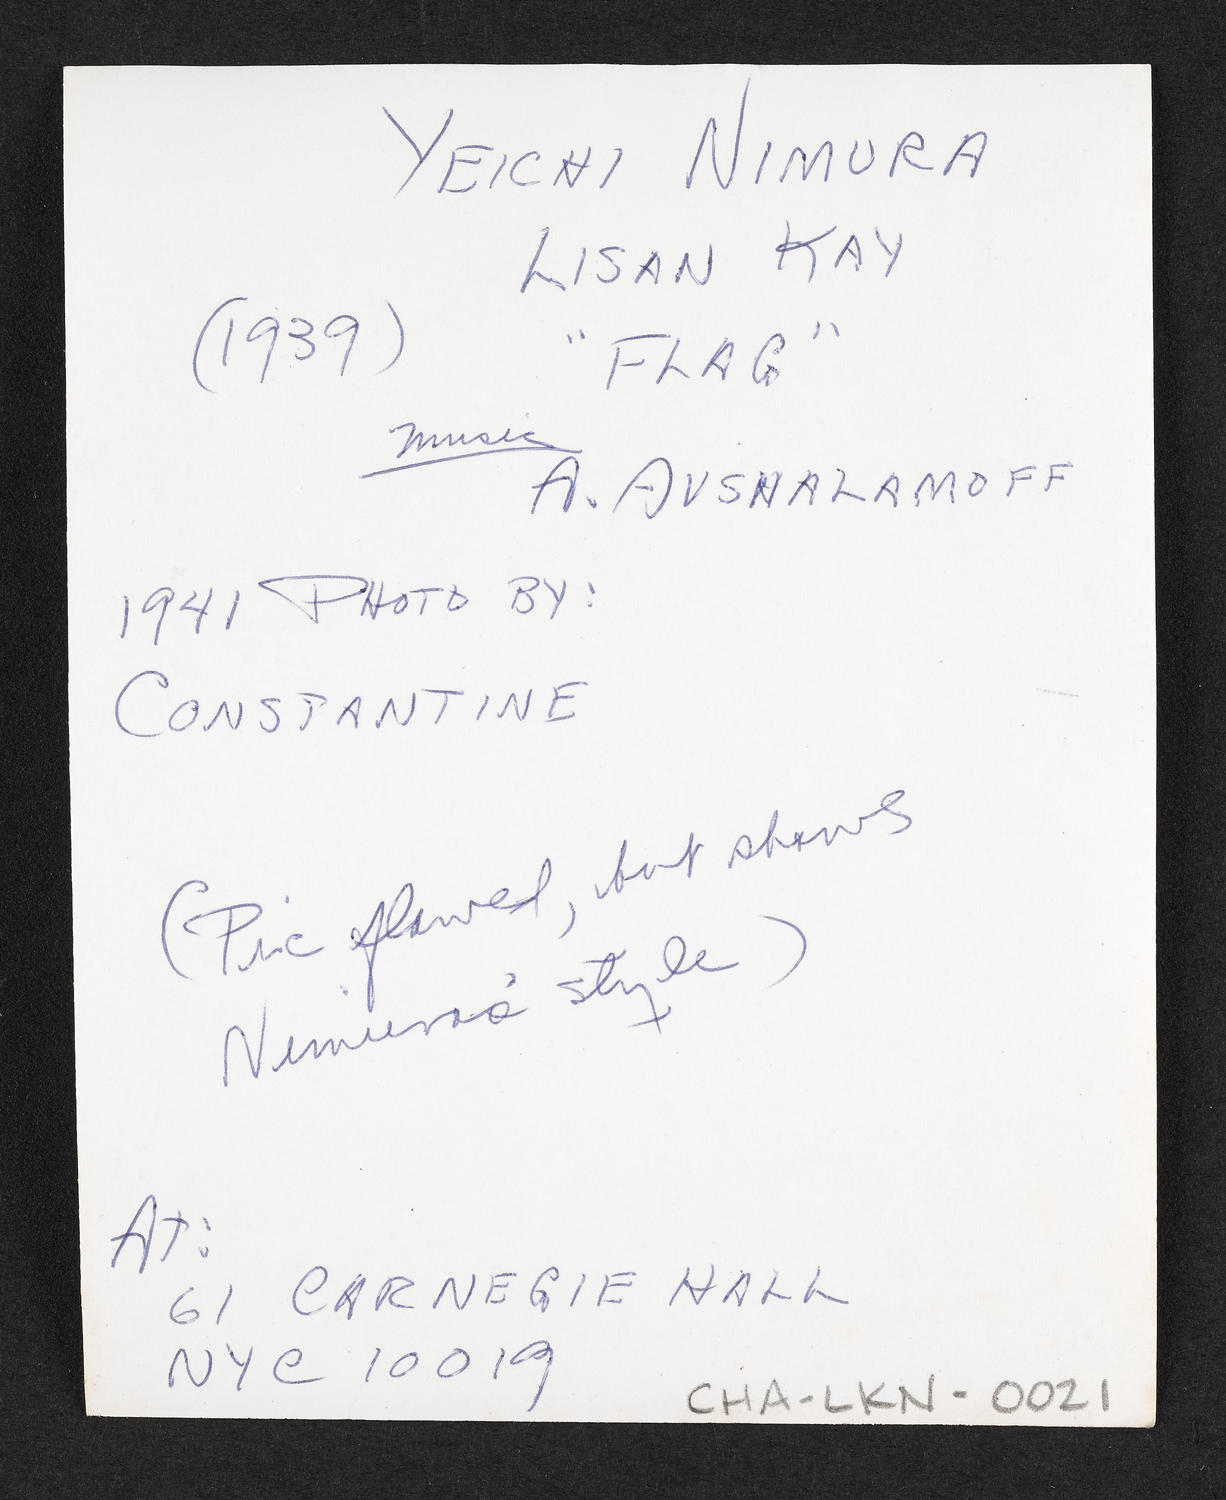 YEICHI NIMURA
LISAN KAY
(1939) "FLAG"
music
A. AVSHALAMOFF
1941 PHOTO BY:
CONSTANTINE
(Pic flawed, but shows
Nimura's style)
AT:
61 CARNEGIE HALL
NYC 10019
CHA-LKN-0021